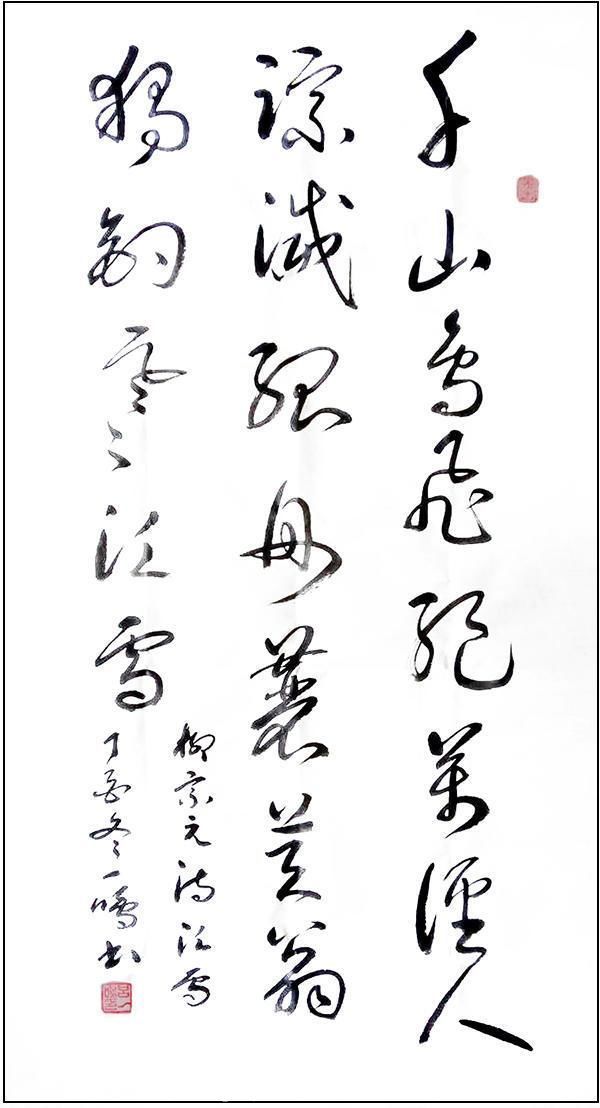 千山鳥飛絕萬徑人
踪滅孤舟蓑笠翁
獨釣寒江雪
柳宗元詩江雪
丁酉冬一鳴书